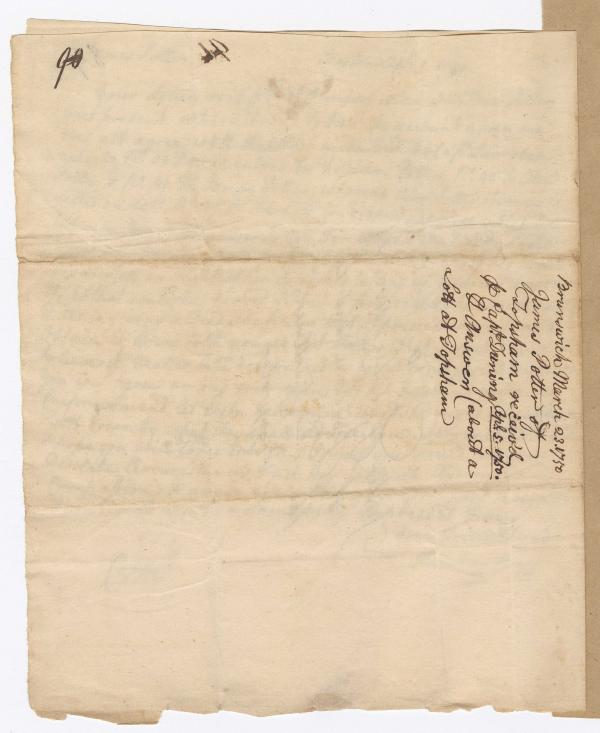 90
Brunswick March 23. 1750
James Potter of
Topsham received
p Capt. Duning Apl. 5. 1750.
& Answer (about a
Lott at Topsham